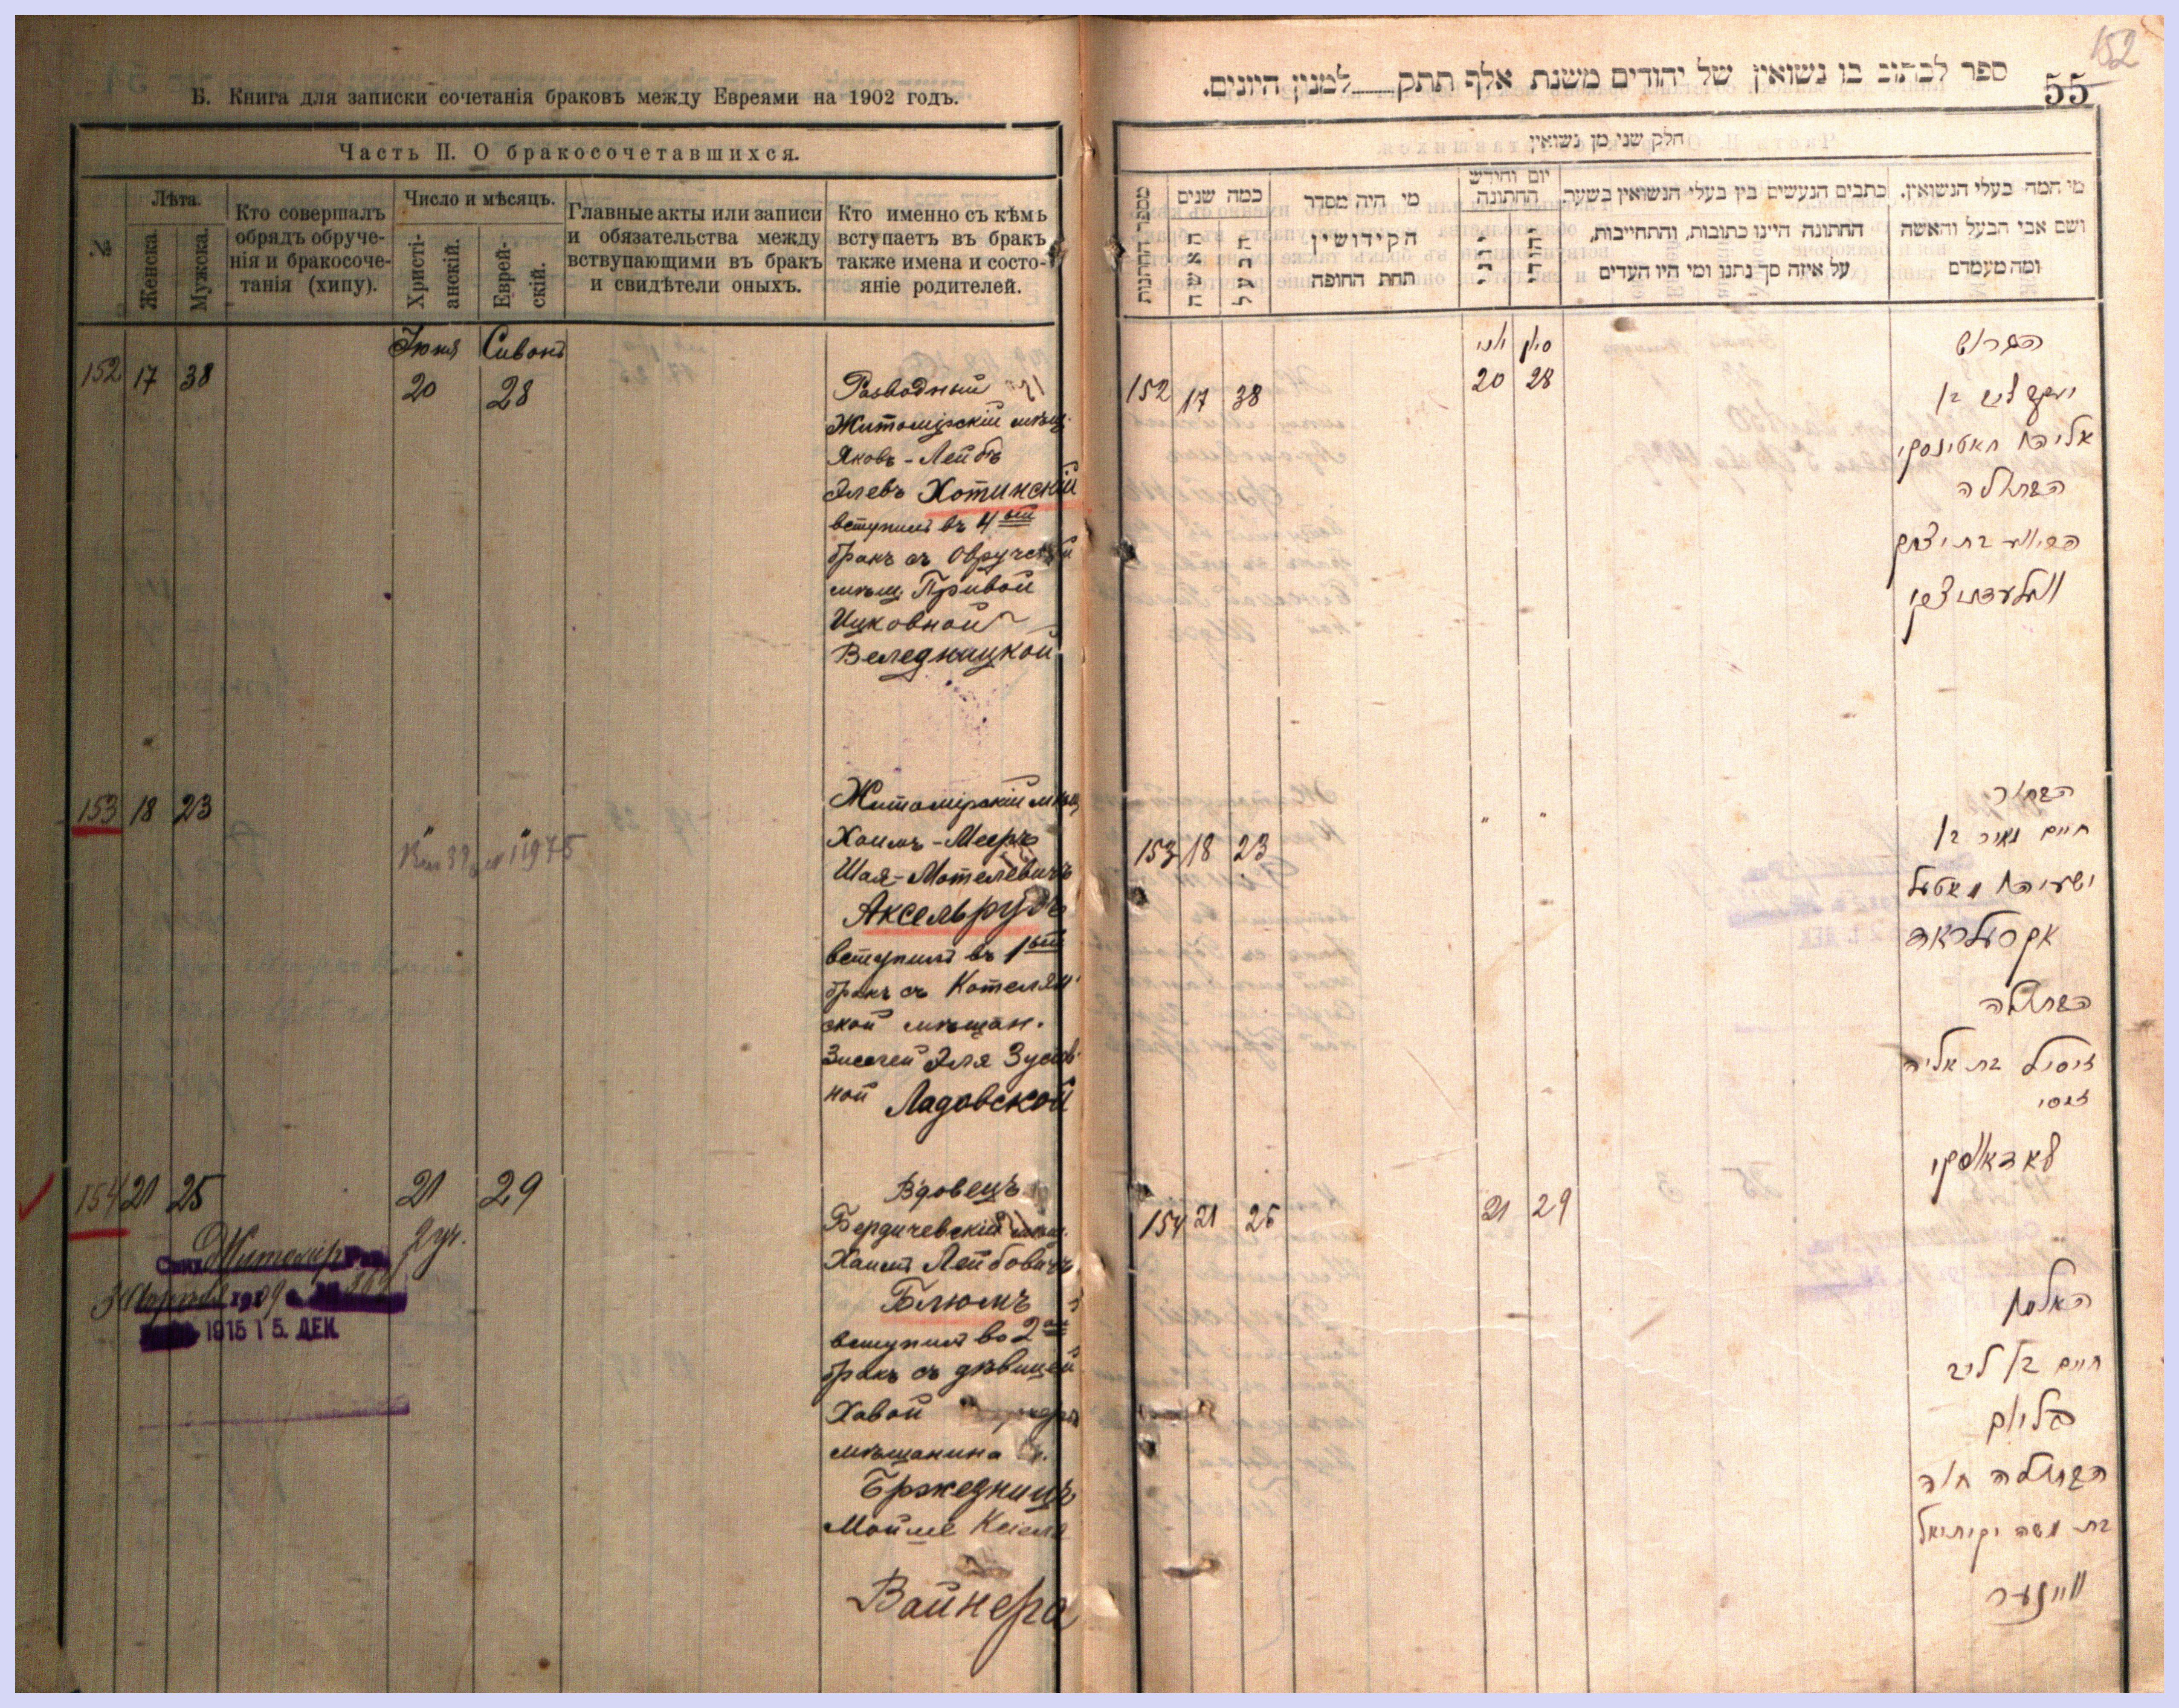 Б. Книга для записки сочетанія браковъ между Евреями на 1902 годъ.
Часть II. О бракосочетавшихся.
№
Лѣта.
Женска.
Мужска.
Кто совершалъ
обрядъ обруче-
нія и бракосоче-
танія (хипу).
Число и мѣсяцъ.
Христі-
анскій.
Еврей-
скій.
Главные акты или записи
и обязательства между
вствупающими въ бракъ
и свидѣтели оныхъ.
Кто именно съ кѣмъ
вступаетъ въ бракъ
также имена и состо-
яніе родителей.
Іюня Сивонъ
152 17 38 20 28
Разводный
Житомірскій мѣщ.
Яковъ-Лейбъ
Элевъ Хотинскій
вступилъ въ 4ый
бракъ съ Овручской
мѣщ. Привой
Ицковной
Веледницкой
153 18 23 " "
Житомірскій мѣщ
Хаимъ-Мееръ
Шая-Мотелевичъ
Аксельрудъ
вступилъ въ 1ый
бракъ съ Котелян-
ской мѣщан.
Эля Зусев-
ной Ладовской
154 21 25 21 29
Вдовецъ
Бердичевскій мѣщ.
Хаимъ Лейбовичъ
Блюмъ
вступилъ во 2ой
бракъ съ дѣвицей
Хавой
мѣщанина
Мойше
Вайнера
Житомір
2 уч.
1915 15. ДЕК.
152
55
ספר לכתוב בו נשואין של יהודים משנת אלף תתק___למנין היונים.
חלק שני מן נשואין
מספר החתונות
כמה שנים
האשה
הבעל
מי היה מסדר
הקידושין
תחת החופה
יום וחודש
החתונה
יוני
יהודי
כתבים הנעשים בין בעלי הנשואין בשער
החתונה היינו כתובות, והתחייבות,
על איזה סך נתנו ומי היו העדים
מי המה בעלי הנשואין.
ושם אבי הבעל והאשה
ומה מעמדם
יוני סיון
152 17 38 20 28
הגרוש
יעקב ליב בן
אליהו חאטינסקי
הבתולה
בת יצחק
וועלעדניצקי
153 18 23 " "
הבחור
חיים מאיר בן
ישעיהו מאטעל
אקסעלראד
הבתולה
זיסיל בת אליה
זוסי
לאדאווסקי
154 21 25 21 29
האלמן
חיים בן ליב
בליום
הבתולה חוה
בת משה יקותיאל
ווײנער